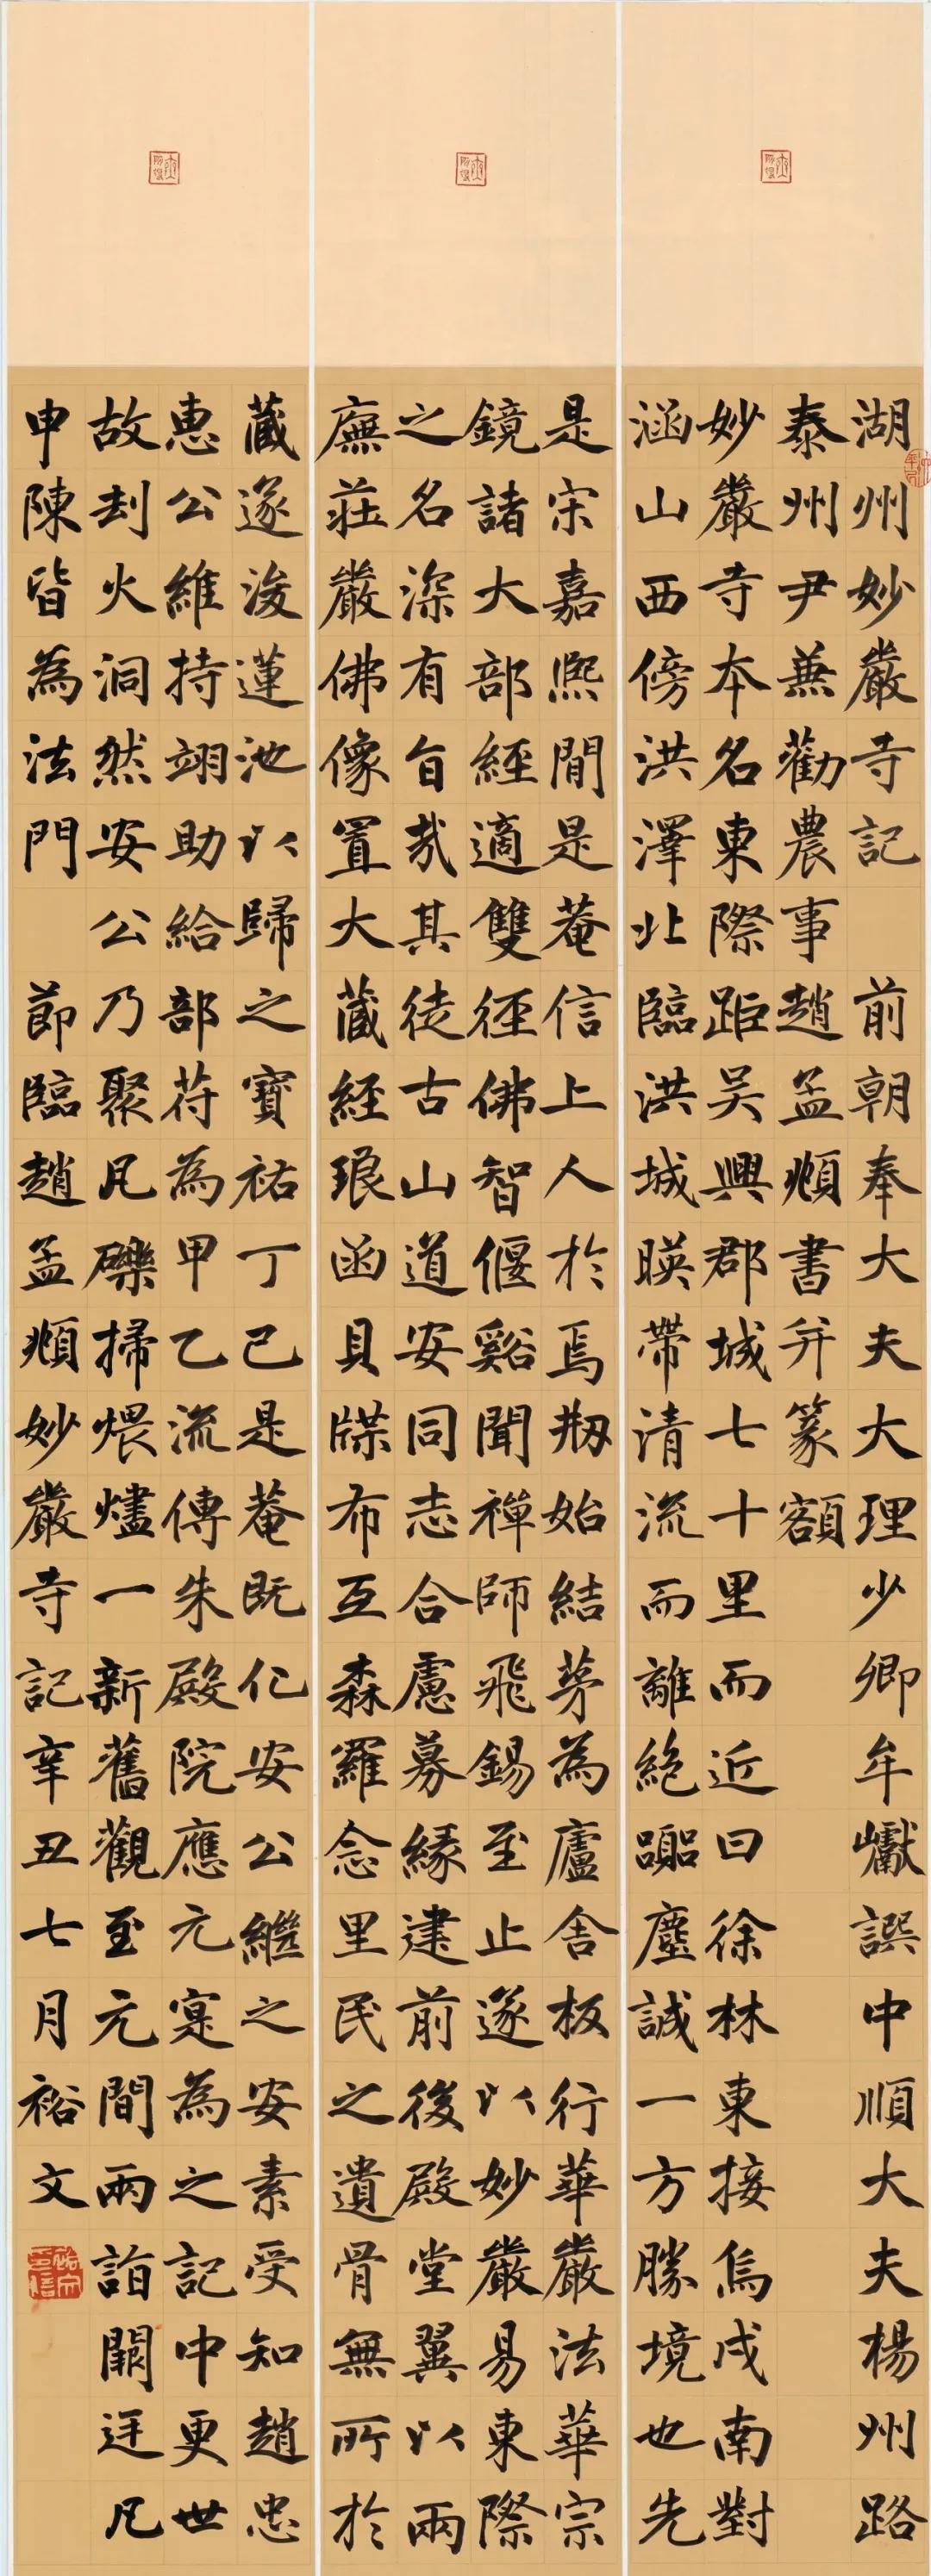 湖州妙嚴寺記 前朝奉大夫大理少卿牟巘譔中順大夫楊州路
泰州尹兼勸農事趙孟頫書并篆額
妙嚴寺本名東際距吴興郡城七十里而近曰徐林東接烏戍南對
涵山西傍洪澤北臨洪城暎帶清流而離絶囂塵誠一方勝境也先
是宋嘉熙閒是菴信上人於焉剏始結茅為廬舍板行華嚴法華宗
鏡諸大部經適雙徑佛智偃谿聞禪師飛錫至止遂以妙嚴易東際
之名深有旨哉其徒古山道安同志合慮募緣建前後殿堂翼以兩
廡莊嚴佛像置大藏經琅函貝牒布互森羅念里民之遺骨無所於
藏遂浚蓮池以歸之寶祐丁巳是菴既化安公繼之安素受知趙忠
惠公維持翊助給部苻為甲乙流傳朱殿院應元寔為之記中更世
故刦火洞然安公乃聚凡礫掃煨燼一新舊觀至元間兩詣闕廷凡
申陳皆為法門 節臨趙孟頫妙嚴寺記辛丑七月裕文